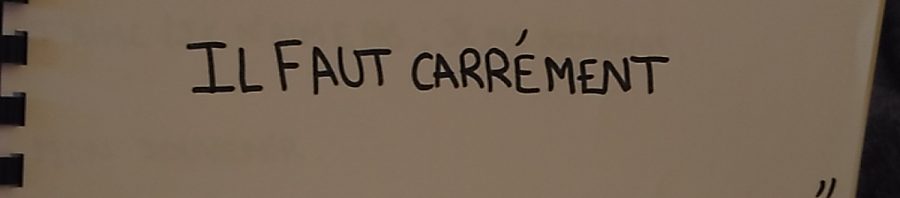 IL FAUT CARRÉMENT
"